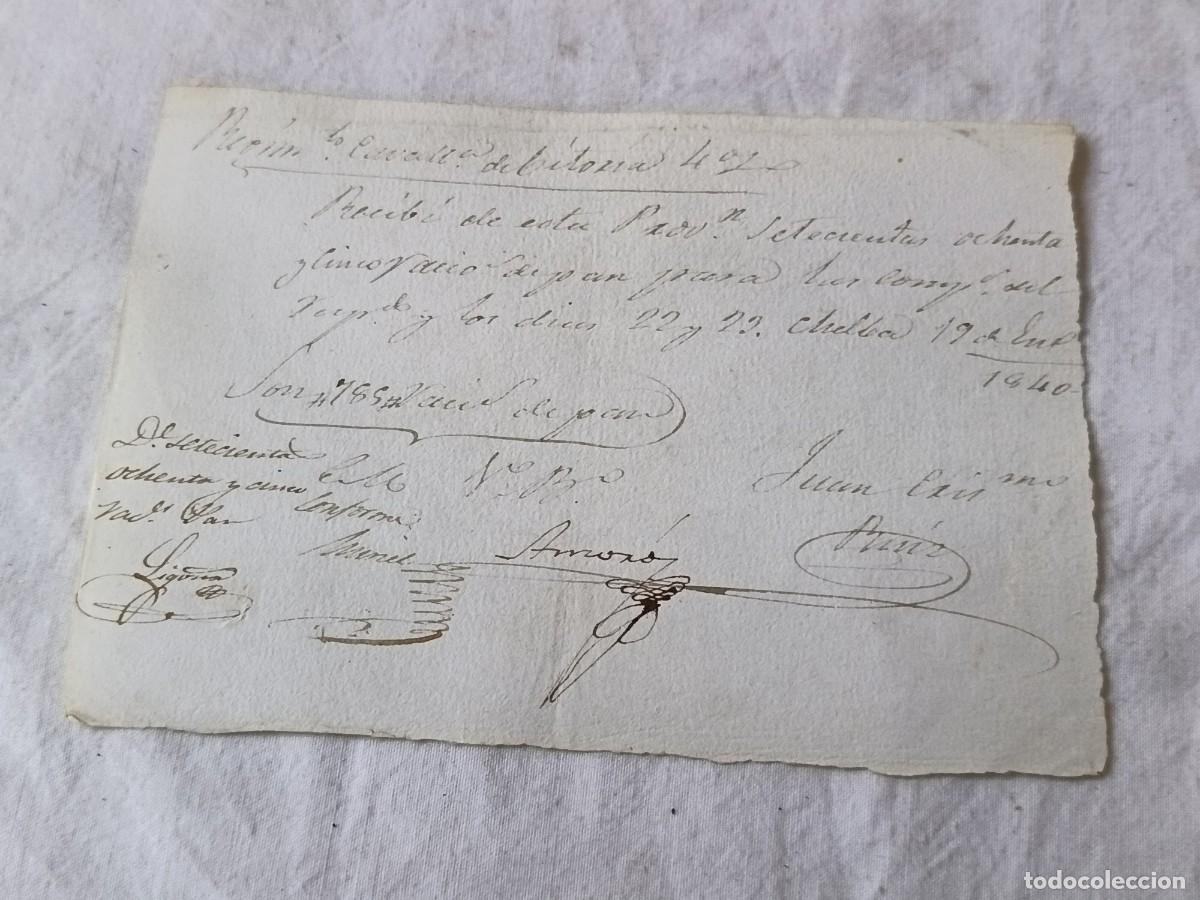 Regim.to Cavall.a de Bitoria 4º
Recibi de esta Prov.n Setecientas ochenta
y cinco racio.s de pan para las comp.s del
y los dias 22 y 23. Chelba 19 de En.o
1840
Son #785# racio.s de pan
D.s setecientas
ochenta y cinco
rac.s Pan
Conforme
V.º B.º
Amoró
Juan Cris.mo
Ruiz
todocoleccion